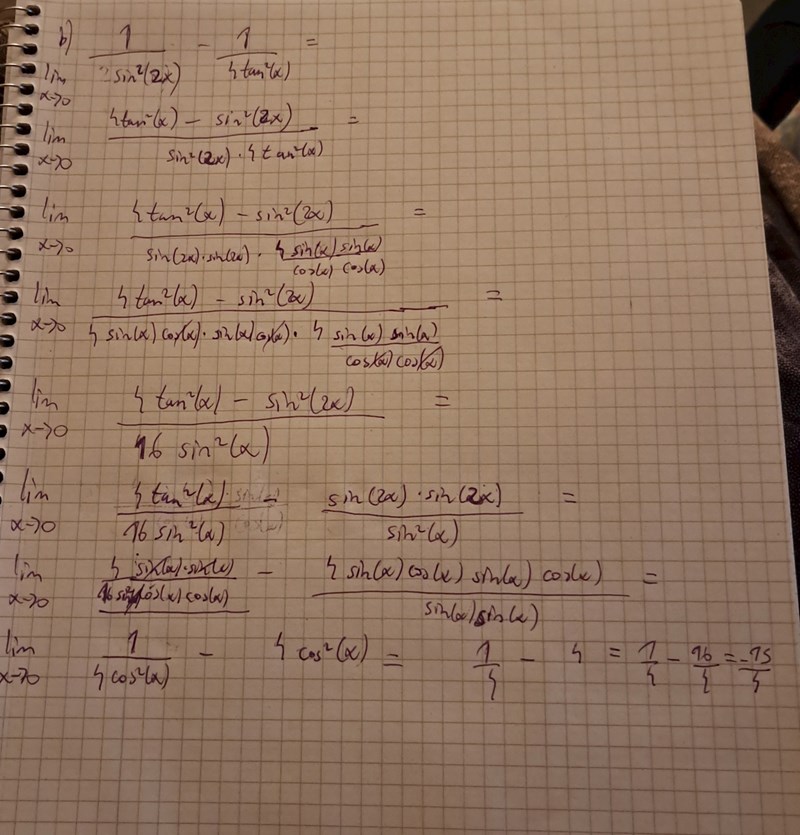 b) lim x→0 1/sin²(2x) − 1/4tan²(x) =
lim x→0 (4tan²(x) − sin²(2x))/(sin²(2x)·4tan²(x)) =
lim x→0 (4tan²(x) − sin²(2x))/(sin(2x)·sin(2x)·(4sin(x) sin(x))/(cos(x) cos(x))) =
lim x→0 (4tan²(x) − sin²(2x))/(4sin(x)cos(x)·sin(x)cos(x)·4(sin(x) sin(x))/(cos(x)cos(x))) =
lim x→0 (4tan²(x) − sin²(2x))/(16 sin²(x)) =
lim x→0 (4tan²(x))/(16 sin²(x)) − (sin(2x)·sin(2x))/(sin²(x)) =
lim x→0 (4 sin(x)·sin(x))/(16 sin² cos(x)cos(x)) − (4sin(x)cos(x)sin(x)cos(x))/(sin(x)sin(x)) =
lim x→0 1/(4cos²(x)) − 4cos²(x) = 1/4 − 4 = 1/4 − 16/4 = −15/4